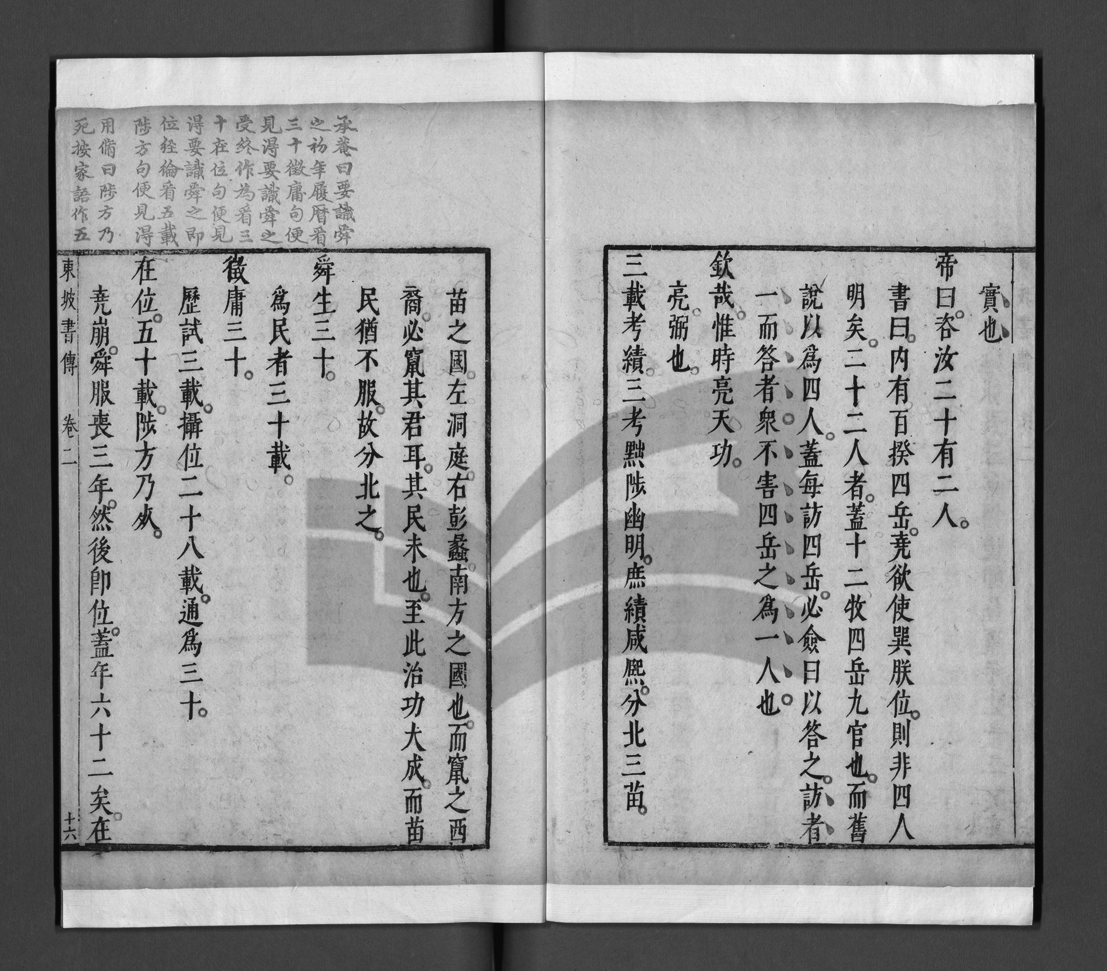 實也
帝曰。咨汝二十有二人。
書曰。內有百揆四岳。堯欲使巽朕位。則非四人
明矣。二十二人者。蓋十二牧四岳九官也。而舊
說以爲四人。蓋每訪四岳。必僉曰以答之。訪者
一而答者衆。不害四岳之爲一人也。
欽哉。惟時亮天功。
亮。弼也。
三載考績。三考黜陟幽明。庶績咸熙。分北三苗。
承菴曰要識舜
之初年履曆看
三十徵庸句便
見得要識舜之
受終作爲看三
十在位句便見
得要識舜之即
位經綸看五載
陟方句便見得
用脩曰陟方乃
死按家語作五
苗之國。左洞庭。右彭蠡。南方之國也。而竄之西
裔。必竄其君耳。其民未也。至此治功大成。而苗
民猶不服。故分北之。
舜生三十。
爲民者三十載。
徵庸三十。
歷試三載。攝位二十八載。通爲三十。
在位。五十載。陟方乃死。
堯崩。舜服喪三年。然後卽位。蓋年六十二矣。在
東坡書傳 卷二 十六